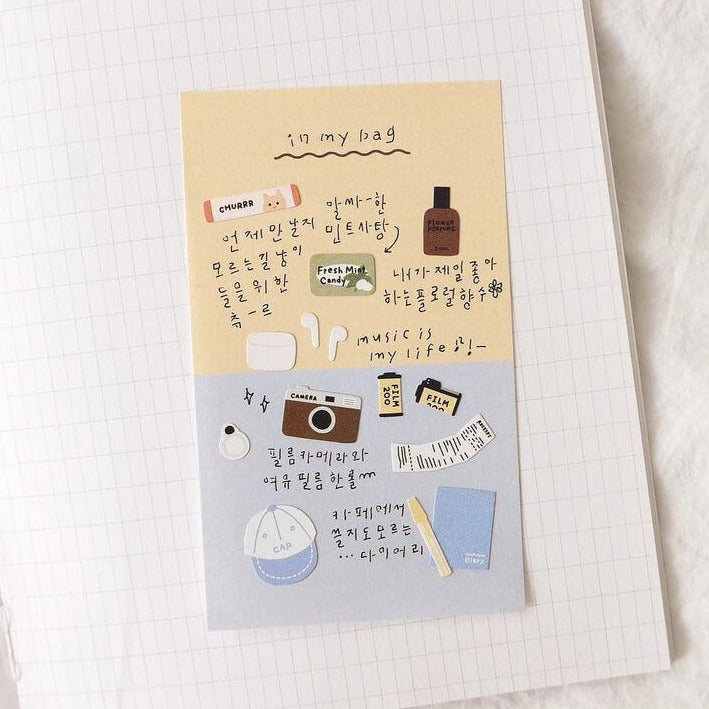 in my bag
CHURRR
언제 만날지
모르는 길냥이
들을 위한
츄-르
알싸-한
민트사탕
Fresh Mint
Candy
FLOWER
PERFUME
내가 제일 좋아
하는 플로럴 향수
music is
my life
CAMERA
FILM
200
FILM
200
RECEIPT
필름카메라와
여유 필름 한롤
CAP
카페에서
쓸지도 모르는
... 다이어리
Diary